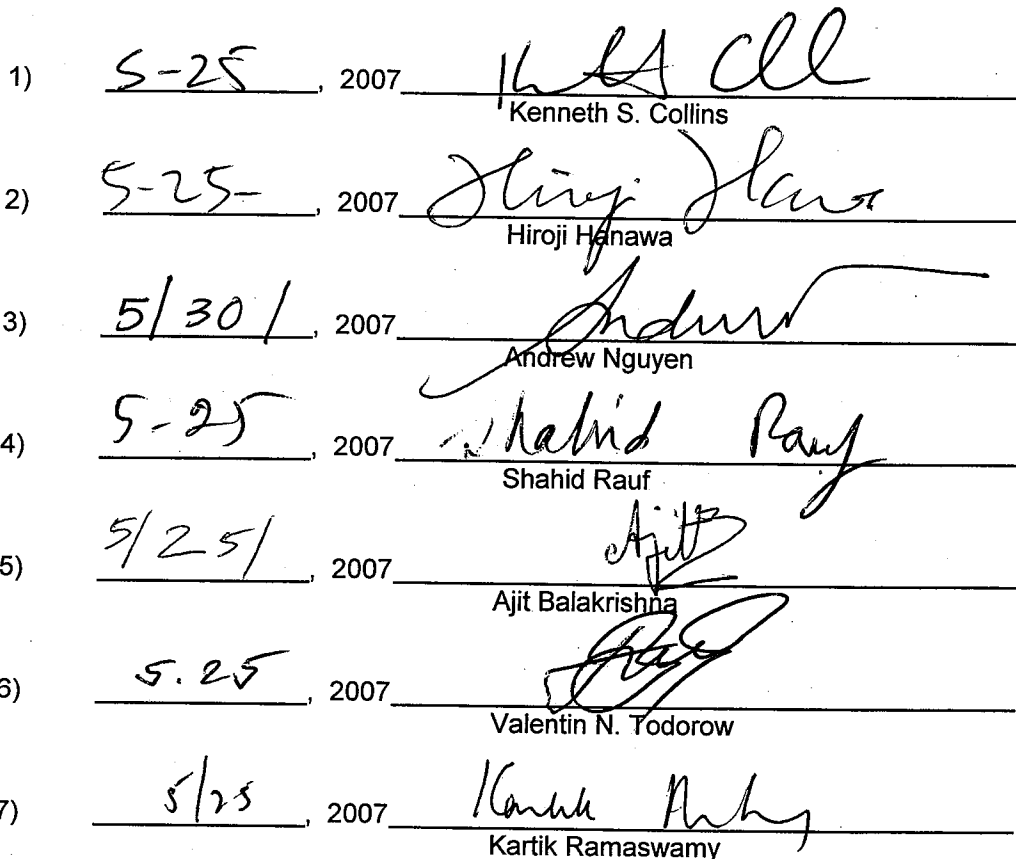 1) 5-25, 2007 Kenneth S. Collins
Kenneth S. Collins
2) 5-25-, 2007 Hiroji Hanawa
Hiroji Hanawa
3) 5/30/, 2007 Andrew
Andrew Nguyen
4) 5-25, 2007 Shahid Rauf
Shahid Rauf
5) 5/25/, 2007 Ajit B
Ajit Balakrishna
6) 5.25, 2007
Valentin N. Todorow
7) 5/25, 2007 Kartik
Kartik Ramaswamy